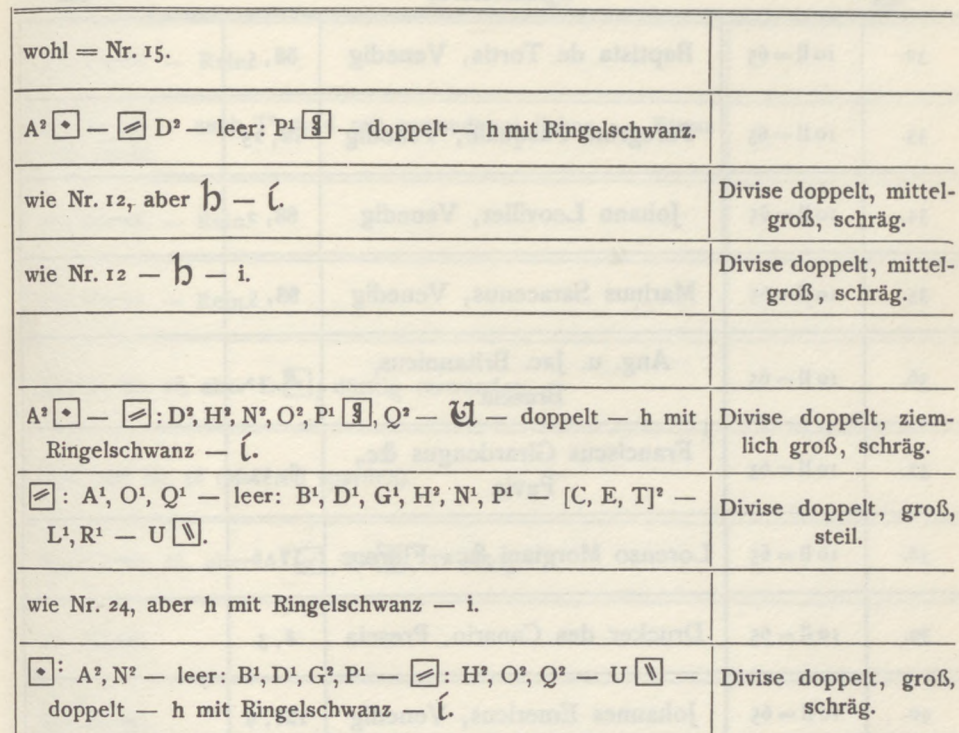 wohl = Nr. 15.
A² — D² — leer: P¹ — doppelt — h mit Ringelschwanz.
wie Nr. 12, aber h — í.
Divise doppelt, mittel-
groß, schräg.
wie Nr. 12 — h — i.
Divise doppelt, mittel-
groß, schräg.
A² — : D², H², N², O², P¹, Q² — U — doppelt — h mit
Ringelschwanz — í.
Divise doppelt, ziem-
lich groß, schräg.
: A¹, O¹, Q¹ — leer: B¹, D¹, G¹, H², N¹, P¹ — [C, E, T]² —
L¹, R¹ — U.
Divise doppelt, groß,
steil.
wie Nr. 24, aber h mit Ringelschwanz — i.
: A², N² — leer: B¹, D¹, G², P¹ — : H², O², Q² — U
doppelt — h mit Ringelschwanz — í
Divise doppelt, groß,
schräg.